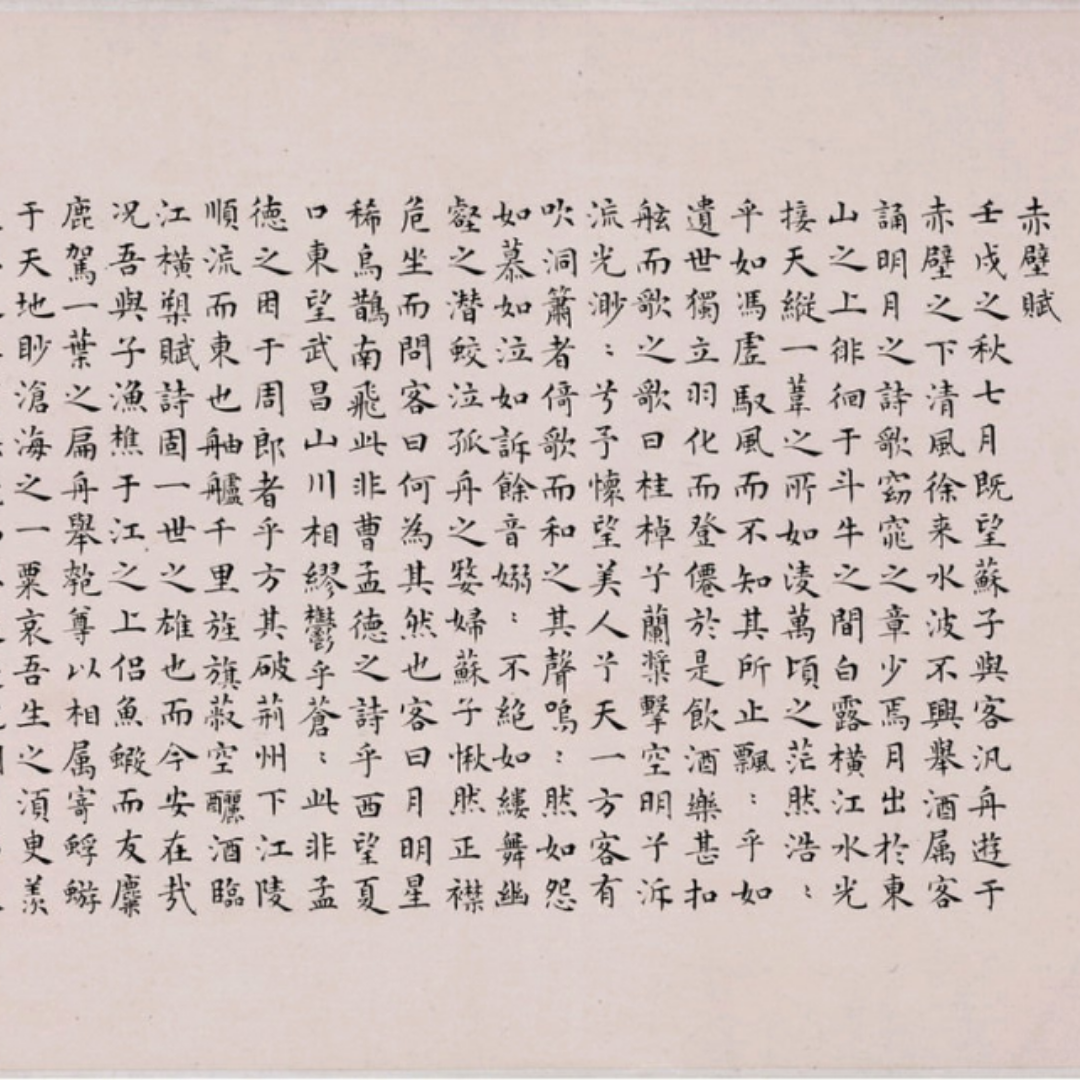 赤壁賦
壬戌之秋七月既望蘇子與客汎舟遊于
赤壁之下清風徐来水波不興舉酒属客
誦明月之詩歌窈窕之章少焉月出於東
山之上徘徊于斗牛之間白露橫江水光
接天縱一葦之所如淩萬頃之茫然浩〻
乎如馮虛馭風而不知其所止飄〻乎如
遺世獨立羽化而登僊於是飲酒樂甚扣
舷而歌之歌曰桂棹兮蘭槳擊空明兮泝
流光渺〻兮予懷望美人兮天一方客有
吹洞簫者倚歌而和之其聲嗚〻然如怨
如慕如泣如訴餘音嫋〻不絕如縷舞幽
壑之潛蛟泣孤舟之嫠婦蘇子愀然正襟
危坐而問客曰何為其然也客曰月明星
稀烏鵲南飛此非曹孟德之詩乎西望夏
口東望武昌山川相繆鬱乎蒼〻此非孟
德之困于周郎者乎方其破荊州下江陵
順流而東也舳艫千里旌旗蔽空釃酒臨
江橫槊賦詩固一世之雄也而今安在哉
况吾與子漁樵于江之上侶魚蝦而友麋
鹿駕一葉之扁舟舉匏尊以相属寄蜉蝣
于天地眇滄海之一粟哀吾生之須臾羨